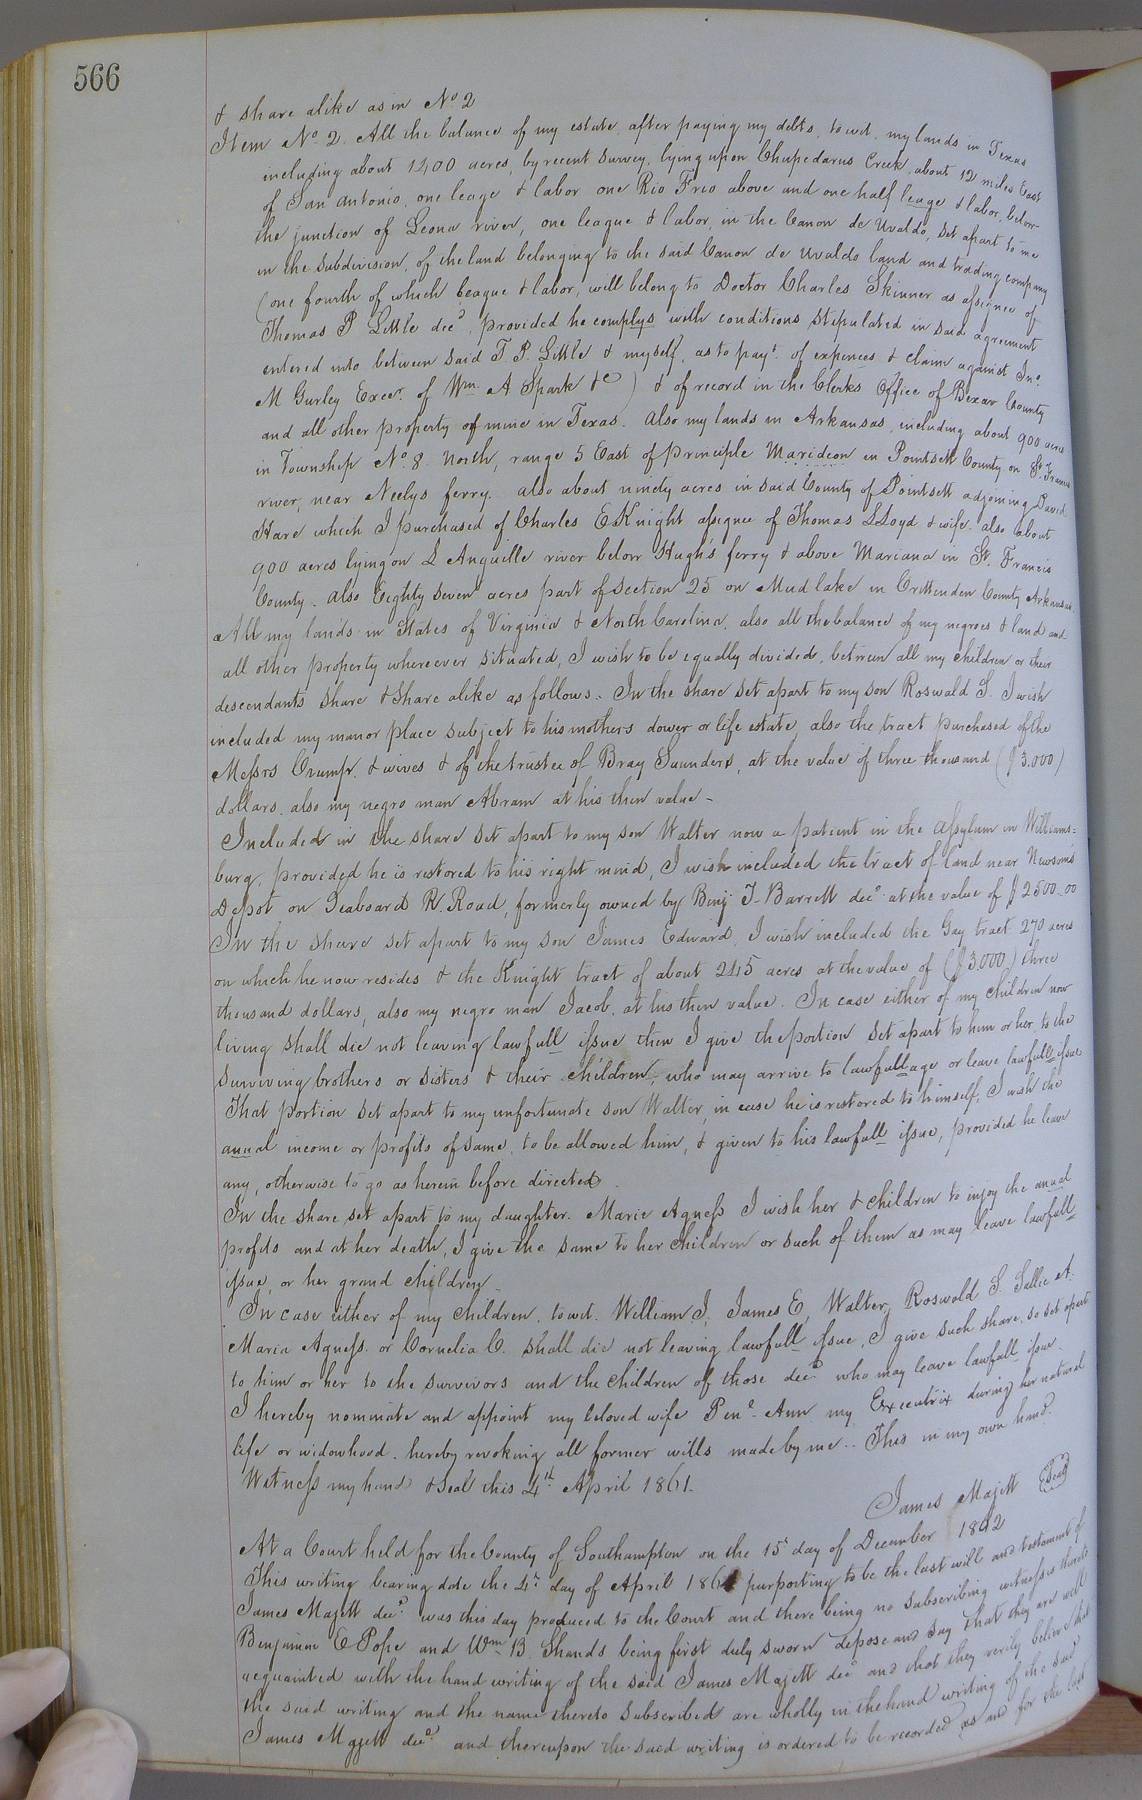 566
& share alike as in No. 2
Item No. 2. All the balance of my estate, after paying my debts, to wit. my lands in Texas
including about 1400 acres, by recent survey, lying upon Chupedarus Creek, about 12 miles East
of San Antonio, one leage & labor one Rio Frio above and one half leage & labor, below
the junction of Leona river, one league & labor, in the Canon de Uvaldo, set apart to me
in the subdivision, of the land belonging to the said Canon de Uvaldo land and trading company
(one fourth of which league & labor, will belong to Doctor Charles Skinner as assignee of
Thomas P Little decd, provided he complys with conditions stipulated in said agreement
entered into between said T P. Little & myself, as to payt. of expences & claim against Jno.
M Gurley Execr. of Wm A Spark &c) & of record in the Clerks Office of Bexar County
and all other property of mine in Texas. Also my lands in Arkansas, including about 900 acres
in Township No. 8 North, range 5 East of principle Marideon in Pointsett County, on St. Francis
river, near Neelys ferry. also about ninety acres in said County of Pointsett adjoining David
Hare which I purchased of Charles E Knight assignee of Thomas LLoyd & wife. also about
900 acres lying on L Anguille river below Hugh's ferry & above Mariana in St. Francis
County. also Eighty seven acres part of section 25 on Mud lake in Crittenden County Arkansas.
All my lands in States of Virginia & North Carolina. also all the balance of my negroes & land and
all other property whereever situated, I wish to be equally divided, between all my children or their
descendants share & share alike as follows. In the share set apart to my son Roswald S. I wish
included my manor place subject to his mothers dower or life estate, also the tract purchased of the
Messrs Crumpr. & wives & of the trustee of Bray Saunders, at the value of three thousand ($3.000)
dollars. also my negro man Abram at his then value -
Included in the share set apart to my son Walter now a patient in the Assylum in Williams=
burg, provided he is restored to his right mind, I wish included the tract of land near Newsom's
Depot on Seaboard R. Road, formerly owned by Benj T. Barrett decd at the value of $2500.00
In the share set apart to my son James Edward, I wish included the Gay tract 270 acres
on which he now resides & the Knight tract of about 245 acres at the value of ($3000) three
thousand dollars, also my negro man Jacob, at his then value. In case either of my children now
living shall die not leaving lawfull issue then I give the portion set apart to him or her, to the
surviving brothers or sisters & their children, who may arrive to lawfull age or leave lawfull issue
That portion set apart to my unfortunate son Walter, in case he is restored to himself, I wish the
anual income or profits of same, to be allowed him, & given to his lawfull issue, provided he leave
any, otherwise to go as herein before directed.
In the share set apart to my daughter. Marie Agness I wish her & children to injoy the anual
profits and at her death, I give the same to her children or such of them as may leave lawfull
issue, or her grand children.
In case either of my children, to wit. William J, James E, Walter, Roswald S. Sallie A.
Maria Agness. or Cornelia C. shall die not leaving lawfull issue, I give such share, so set apart
to him or her to the survivors and the children of those decd who may leave lawfull issue.
I hereby nominate and appoint my beloved wife Pene. Ann my Executrix during her natural
life or widowhood. hereby revoking all former wills made by me.. This in my own hand.
Witness my hand & seal this 4th April 1861.
James Majett (Seal)
At a Court held for the County of Southampton on the 15th day of December 1862
This writing bearing date the 4th day of April 1861 purporting to be the last will and testament of
James Majett decd. was this day produced to the Court and there being no subscribing witnesses thereto
Benjamin E Pope and Wm B Shands being first duly sworn depose and say that they are well
acquainted with the hand writing of the said James Majett decd and that they verily believe that
the said writing and the name thereto subscribed are wholly in the hand writing of the said
James Majett decd. and thereupon the said writing is ordered to be recorded as and for the last